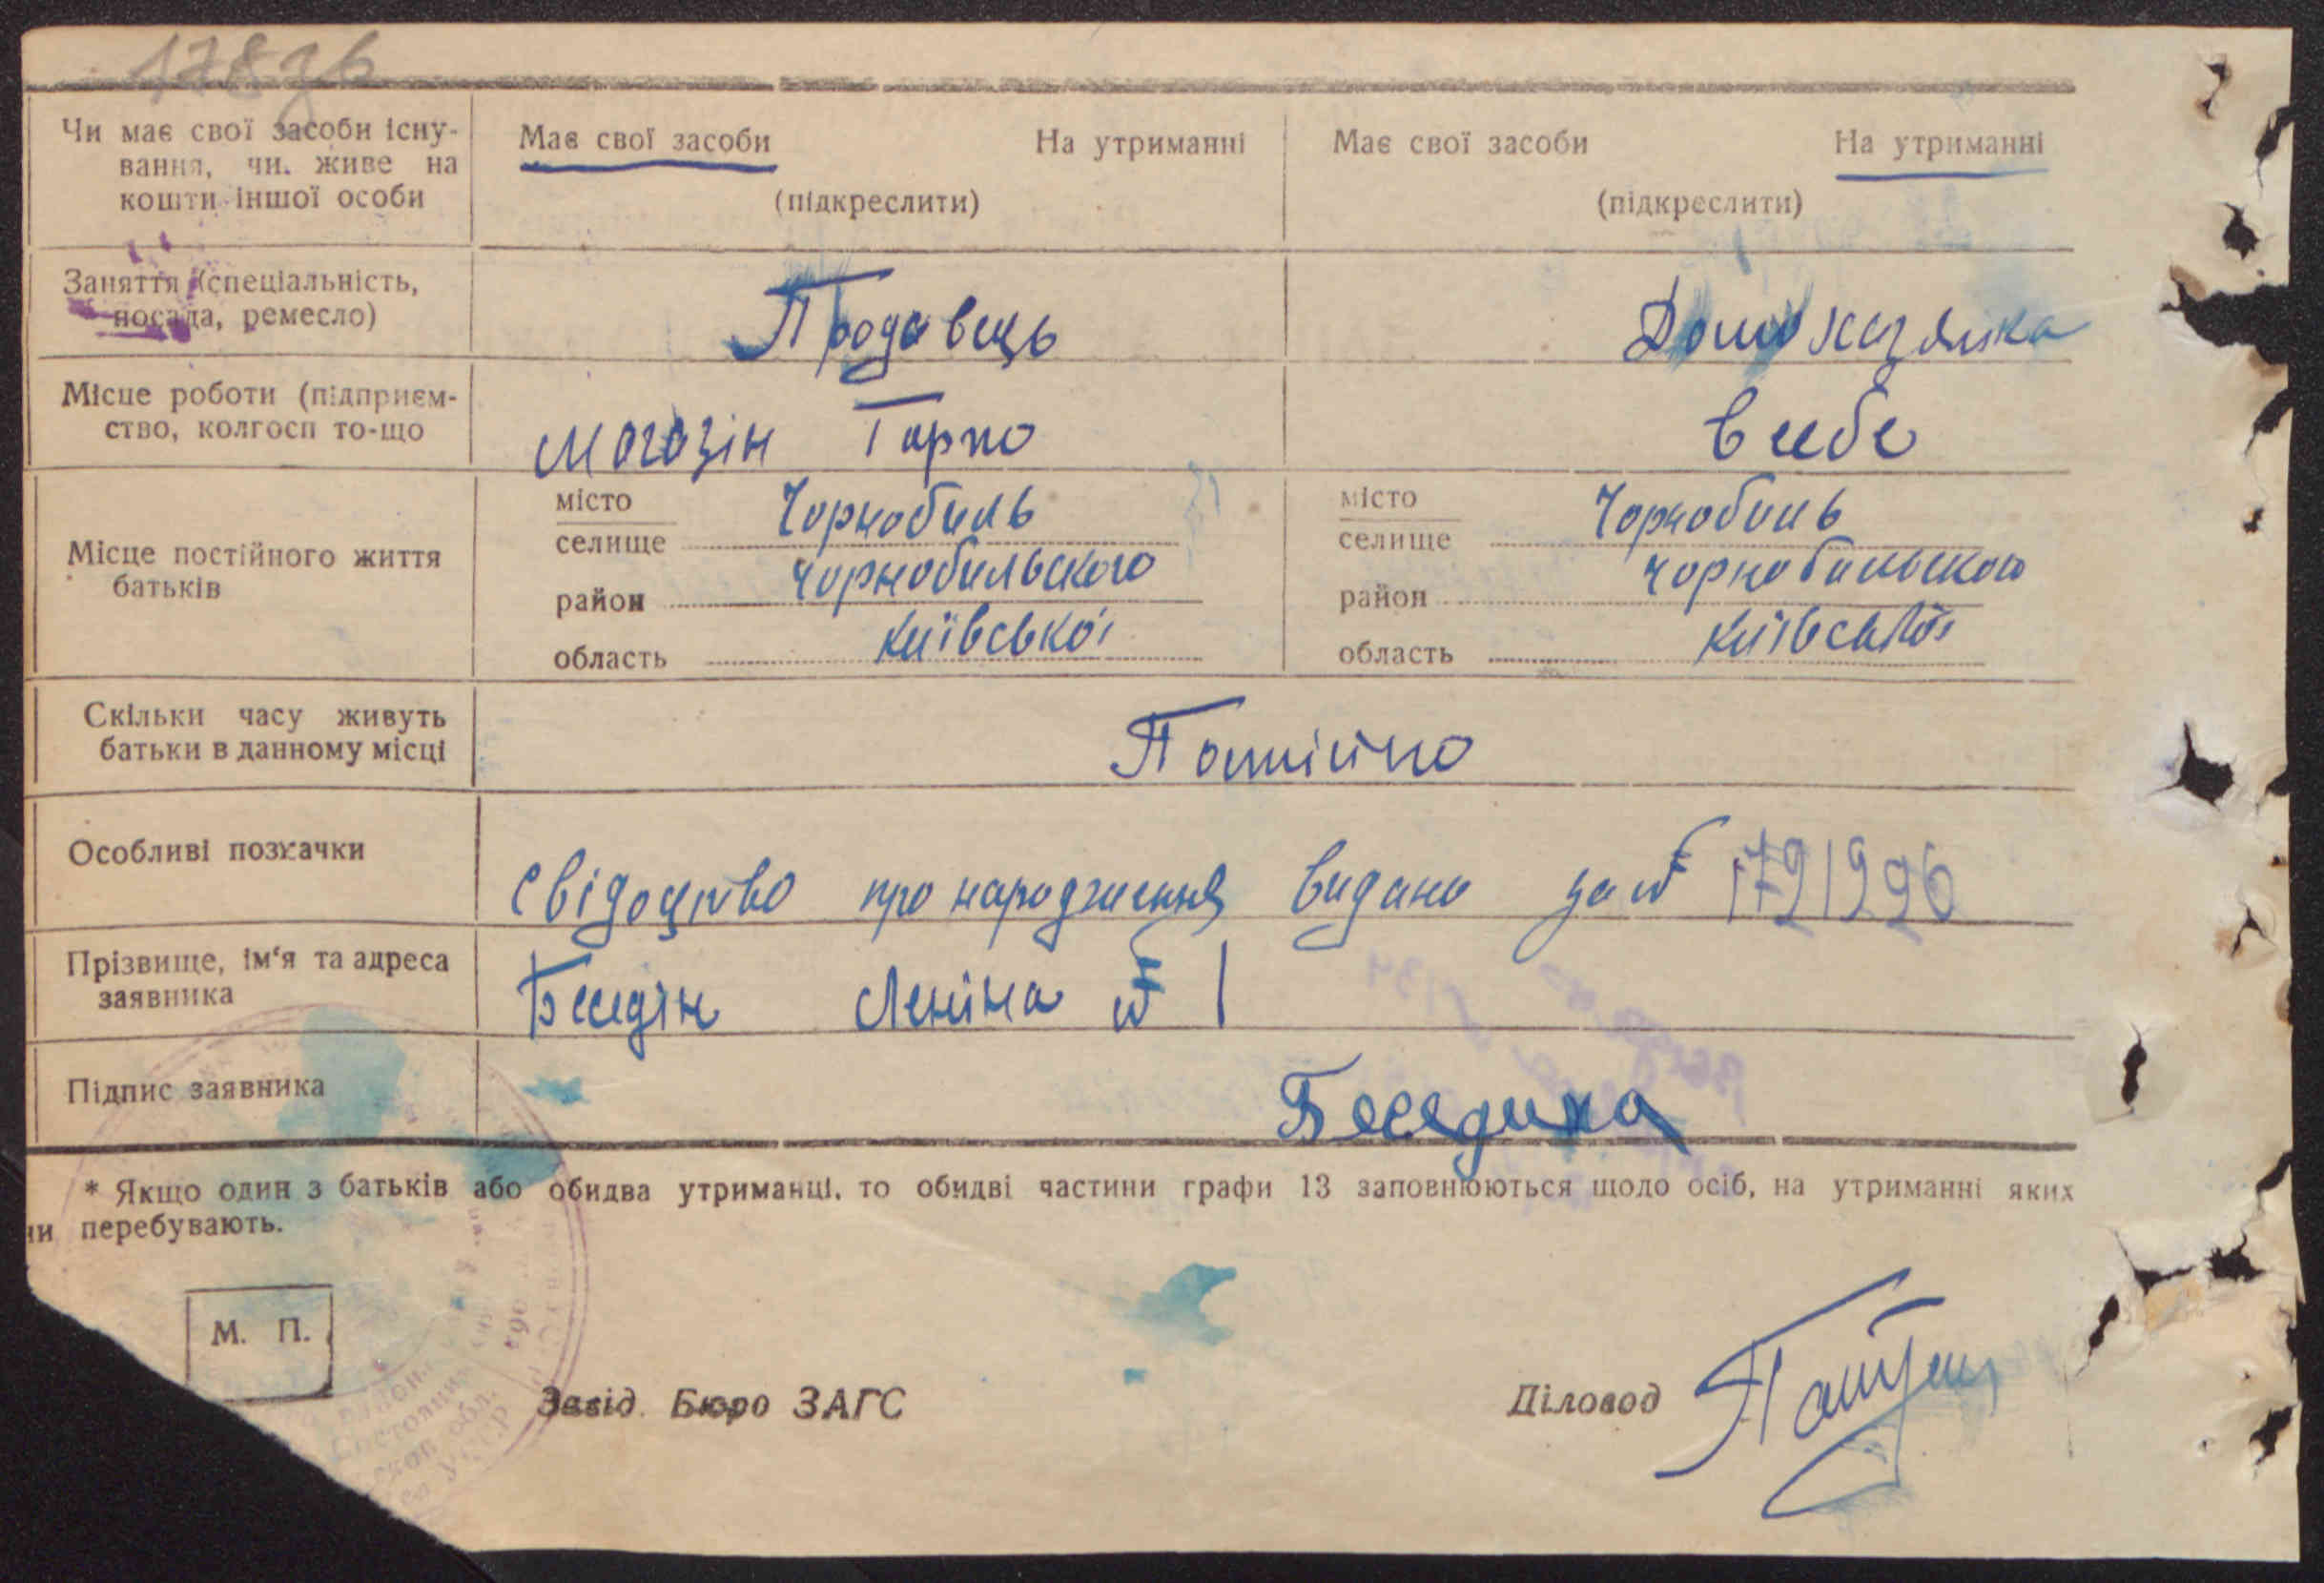 17876
Чи має свої засоби існу-
вання, чи живе на
кошти іншої особи
Має свої засоби На утриманні
(підкреслити)
Має свої засоби На утриманні
(підкреслити)
Заняття (спеціальність,
посада, ремесло)
Продавець
Домохазяика
Місце роботи (підприєм-
ство, колгосп то-що
Магазін Торго
в себе
Місце постійного життя
батьків
місто
селище Чорнобиль
район Чорнобильського
область Київської
місто
селище Чорнобиль
район Чорнобильского
область Київської
Скільки часу живуть
батьки в данному місці
Постійно
Особливі позначки
Свідоцтво про народження видано за № 1791996
Прізвище, ім'я та адреса
заявника
Беседін Леніна № 1
Підпис заявника
Беседина
* Якщо один з батьків або обидва утриманці, то обидві частини графи 13 заповнюються щодо осіб, на утриманні яких
перебувають.
М. П.
Завід. Бюро ЗАГС
Діловод